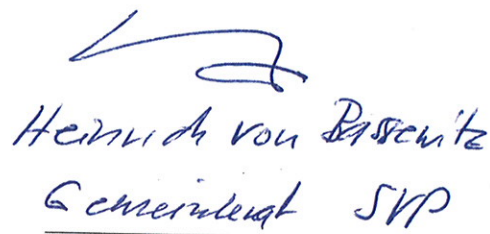 Heinrich von Bassewitz
Gemeinderat SVP